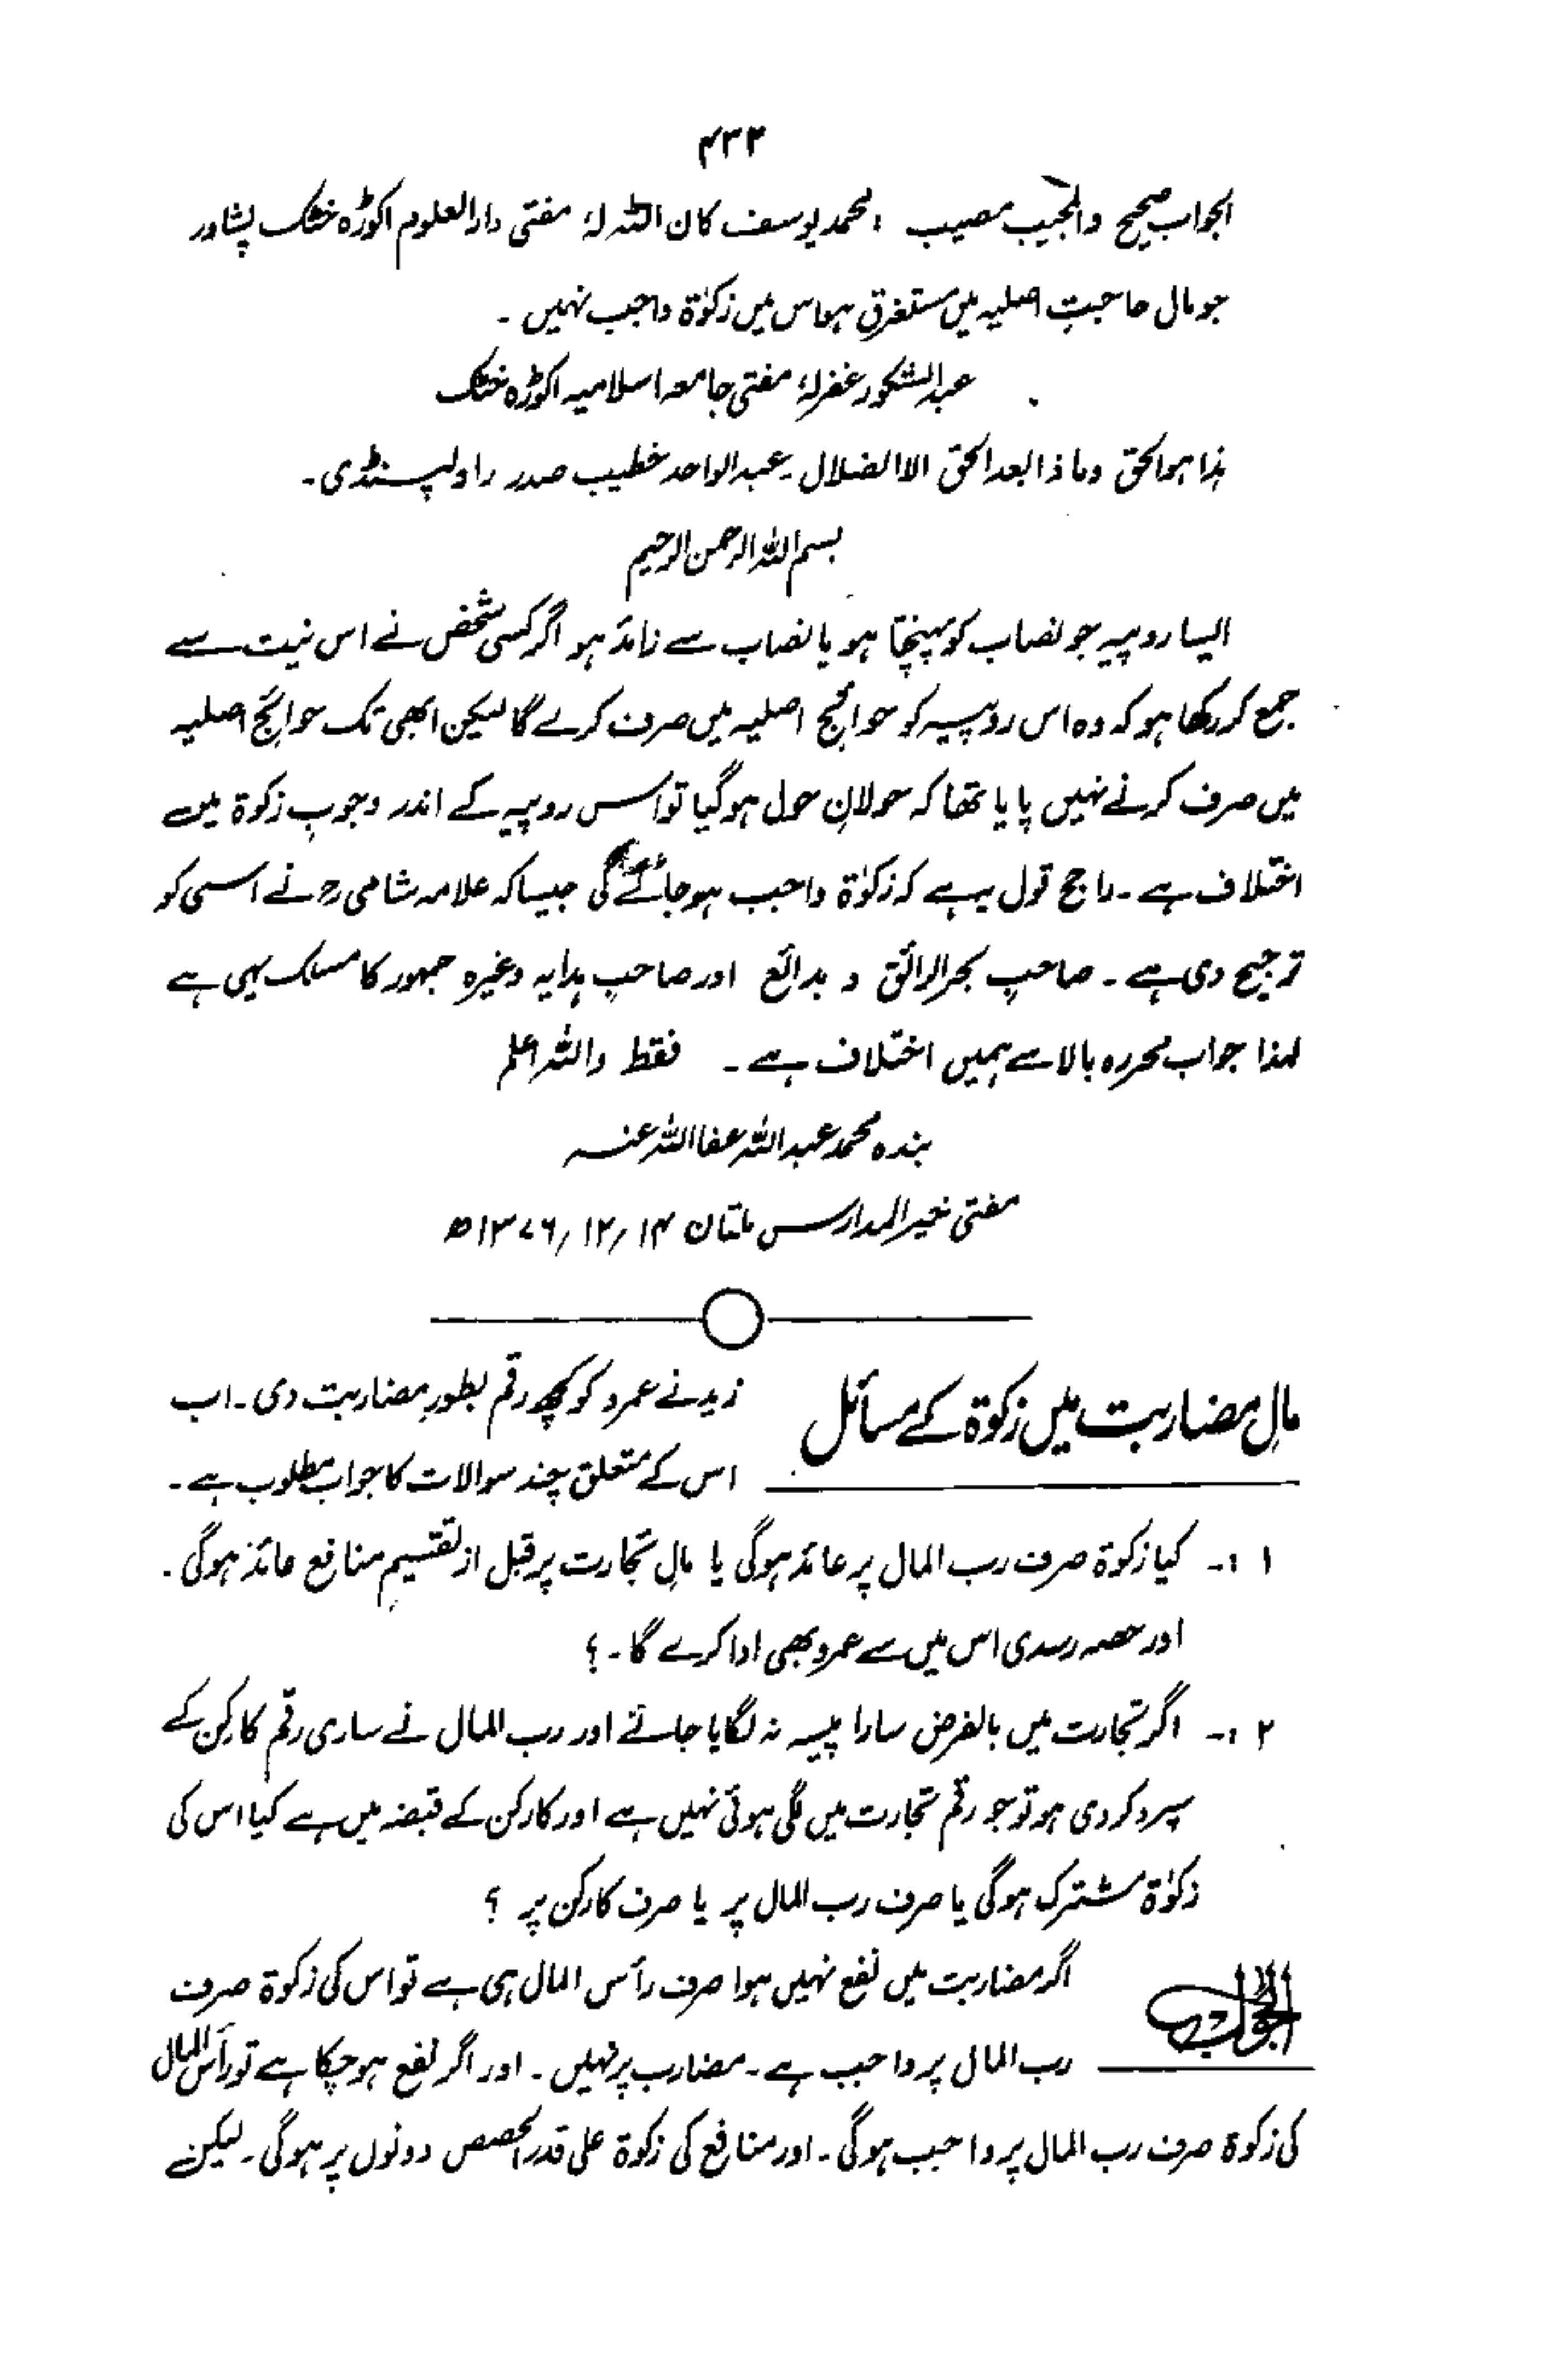 ۴۳۳
الجواب صحیح والمجیب مصیب ، محمد یوسف کان اللہ لہٗ مفتی دارالعلوم اکوڑہ خٹک پشاور
جو مال حاجتِ اصلیہ میں مستغرق ہو اس میں زکوٰۃ واجب نہیں ۔
عبدالشکور غفرلہٗ مفتی جامعہ اسلامیہ اکوڑہ خٹک
ہذا ہوالحق وماذا بعد الحق الا الضلال ۔ عبدالواحد خطیب صدر راولپنڈی ۔
بسم اللہ الرحمن الرحیم
ایسا روپیہ جو نصاب کو پہنچتا ہو یا نصاب سے زائد ہو اگر کسی شخص نے اس نیت سے
جمع کر رکھا ہو کہ وہ اس روپیہ کو حوائج اصلیہ میں صرف کرے گا لیکن ابھی تک حوائج اصلیہ
میں صرف کرنے نہیں پایا تھا کہ حولانِ حول ہو گیا تو اس روپیہ کے اندر وجوبِ زکوۃ میں
اختلاف ہے ۔ راجح قول یہ ہے کہ زکوٰۃ واجب ہو جائے گی جیسا کہ علامہ شامیؒ نے اسی کو
ترجیح دی ہے ۔ صاحبِ بحرالرائق و بدائع اور صاحبِ ہدایہ وغیرہ جمہور کا مسلک یہی ہے
لہذا جواب محررہ بالا سے ہمیں اختلاف ہے ۔ فقط واللہ اعلم
بندہ محمد عبداللہ عفا اللہ عنہ
مفتی خیرالمدارس ملتان ۱۴/۱۲/۱۳۷۶ھ
مالِ مضاربت میں زکوۃ کے مسائل
زید نے عمرو کو کچھ رقم بطورِ مضاربت دی ۔ اب
اس کے متعلق چند سوالات کا جواب مطلوب ہے ۔
۱ :۔ کیا زکوۃ صرف رب المال پر عائد ہوگی یا مالِ تجارت پر قبل از تقسیمِ منافع عائد ہوگی ۔
اور حصہ رسدی اس میں سے عمرو بھی ادا کرے گا ۔ ؟
۲ :۔ اگر تجارت میں بالفرض سارا پیسہ نہ لگایا جائے اور رب المال نے ساری رقم کارکن کے
سپرد کر دی ہو تو جو رقم تجارت میں لگی ہوئی نہیں ہے اور کارکن کے قبضہ میں ہے کیا اس کی
زکوٰۃ مشترک ہوگی یا صرف رب المال پر یا صرف کارکن پر ؟
الجواب
اگر مضاربت میں نفع نہیں ہوا صرف رأس المال ہی ہے تو اس کی زکوۃ صرف
رب المال پر واجب ہے ۔ مضارب پر نہیں ۔ اور اگر نفع ہو چکا ہے تو رأس المال
کی زکوۃ صرف رب المال پر واجب ہوگی ۔ اور منافع کی زکوۃ علی قدر الحصص دونوں پر ہوگی ۔ لیکن